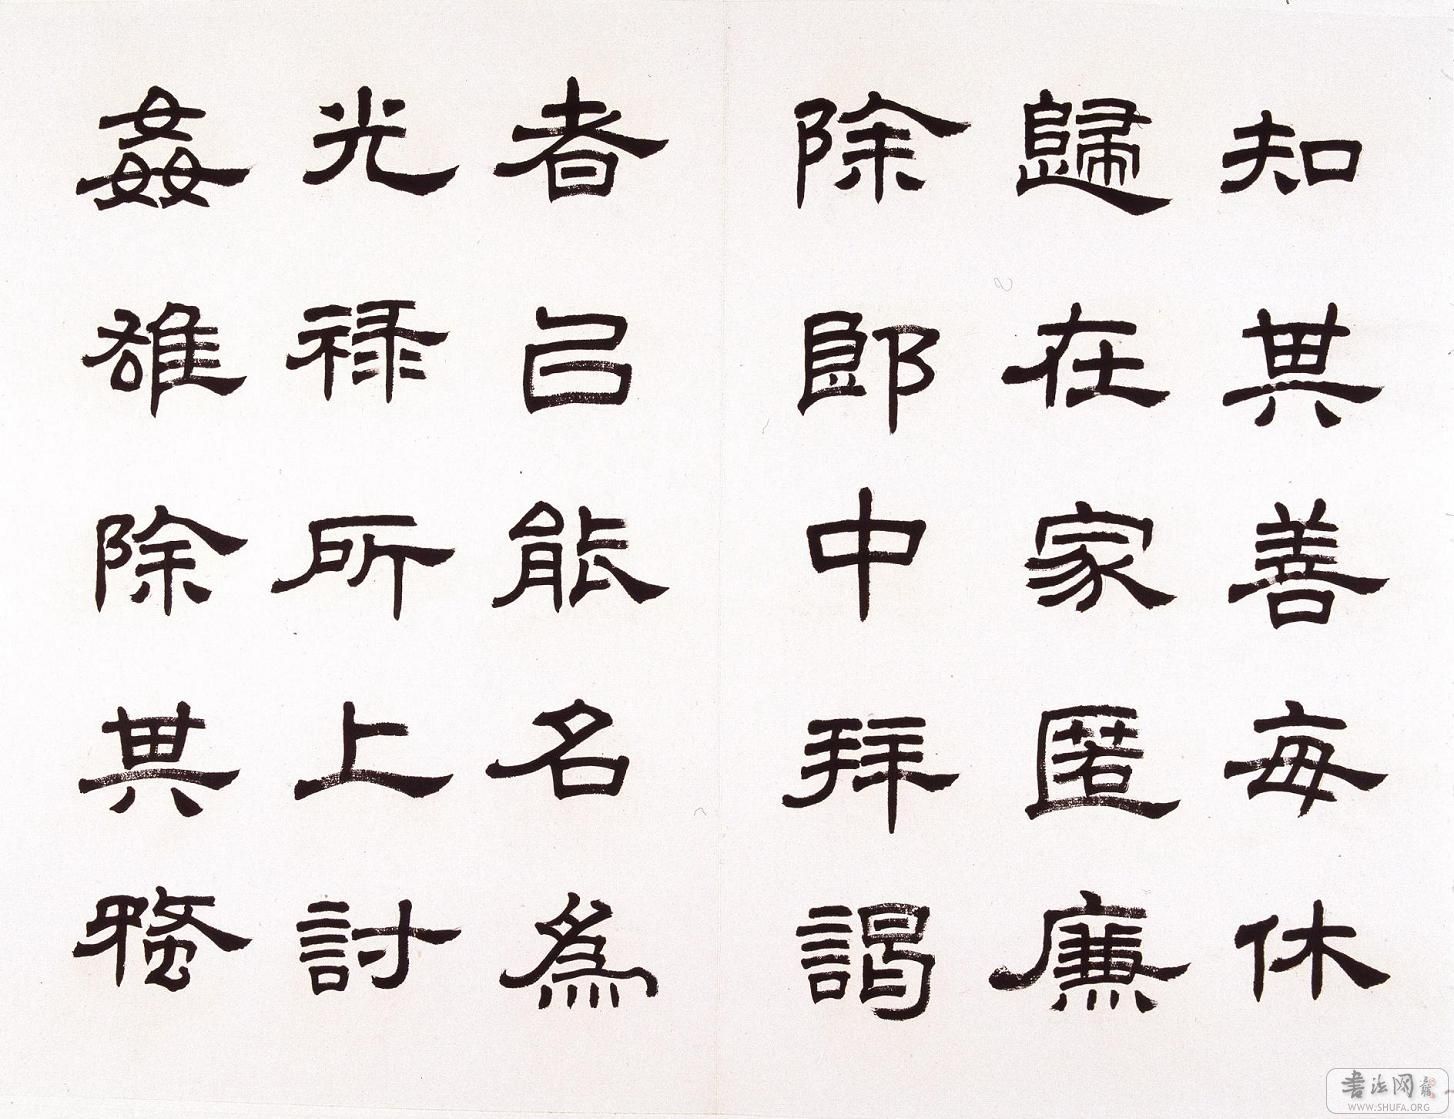 知其善每休
歸在家匿廉
除郎中拜謁
者㠯能名為
光祿所上討
姦雄除其蝥
书法网
WWW.SHUFA.ORG